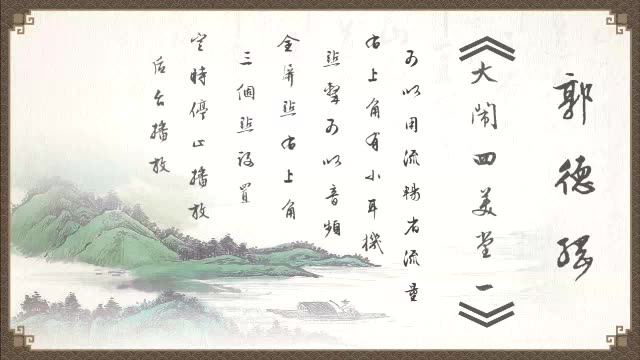 郭德綱
《大闹四美堂一》
可以用流暢省流量
右上角有小耳機
點擊可以音頻
全屏點右上角
三個點設置
定時停止播放
后台播放